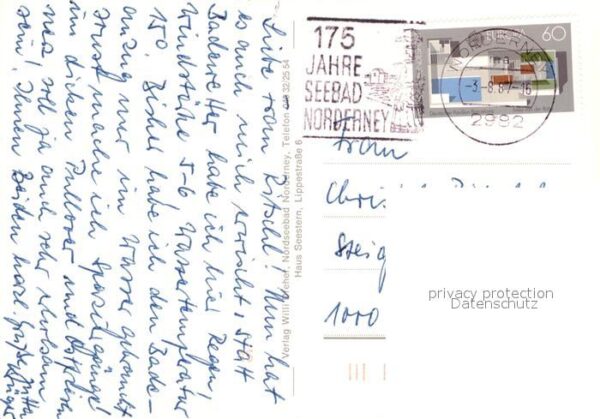 Liebe Frau Ritschl! Nun hat
es auch mich erwischt, statt
Badewetter habe ich hier Regen,
Windstärke 5-6 Wassertemperatur
15°. Bisher habe ich den Bade-
anzug nur im Wasser gebraucht
sonst mache ich Spaziergänge
im dicken Pullover und Ostfriesen
nerz soll ja auch sehr erholsam
sein! Ihnen Beiden herzl. Grüße
Verlag Willi Dreher, Nordseebad Norderney, Telefon
Haus Seestern, Lippestraße 6
175
JAHRE
SEEBAD
NORDERNEY
EUROPA
60
NORDERNEY
-3.-8.87-16
2982
Frau
Steig
1000
privacy protection
Datenschutz